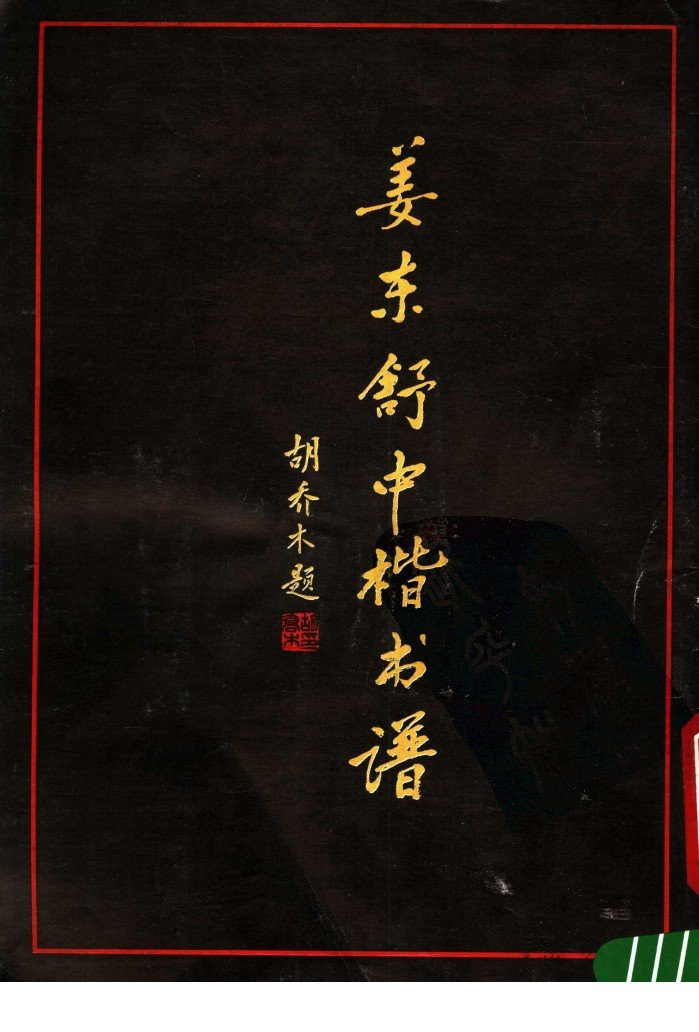 姜东舒中楷书谱
胡乔木题